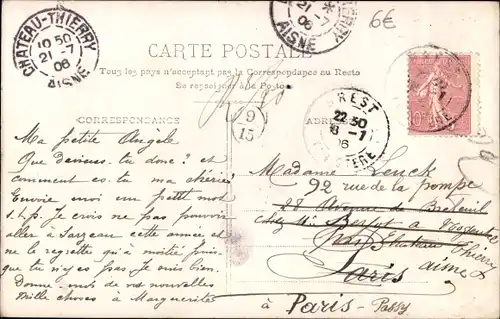 CHATEAU-THIERRY
10 50
21 -7
06
AISNE
21 -7
06
AISNE
6€
CARTE POSTALE
Tous les pays n'acceptent pas la Correspondance au Recto
Se renseigner à la Poste
CORRESPONDANCE
9
15
BREST
22 30
18 -7
06
FINISTERE
10
Ma petite Angèle
Que deviens-tu donc? et
comment es-tu ma chérie
Envoie moi un petit mot
s.t.p. Je crois ne pas pouvoir
aller à Sarzeau cette année et
ne le regrette qu'à moitié puis-
que tu n'y es pas. Je suis bien.
Donne-moi de vos nouvelles
Mille choses à Marguerite
Madame Lenck
92 rue de la pompe
27 Avenue de Breteuil
chez Mr
par Chateau Thierry
Paris aisne
à Paris-Passy